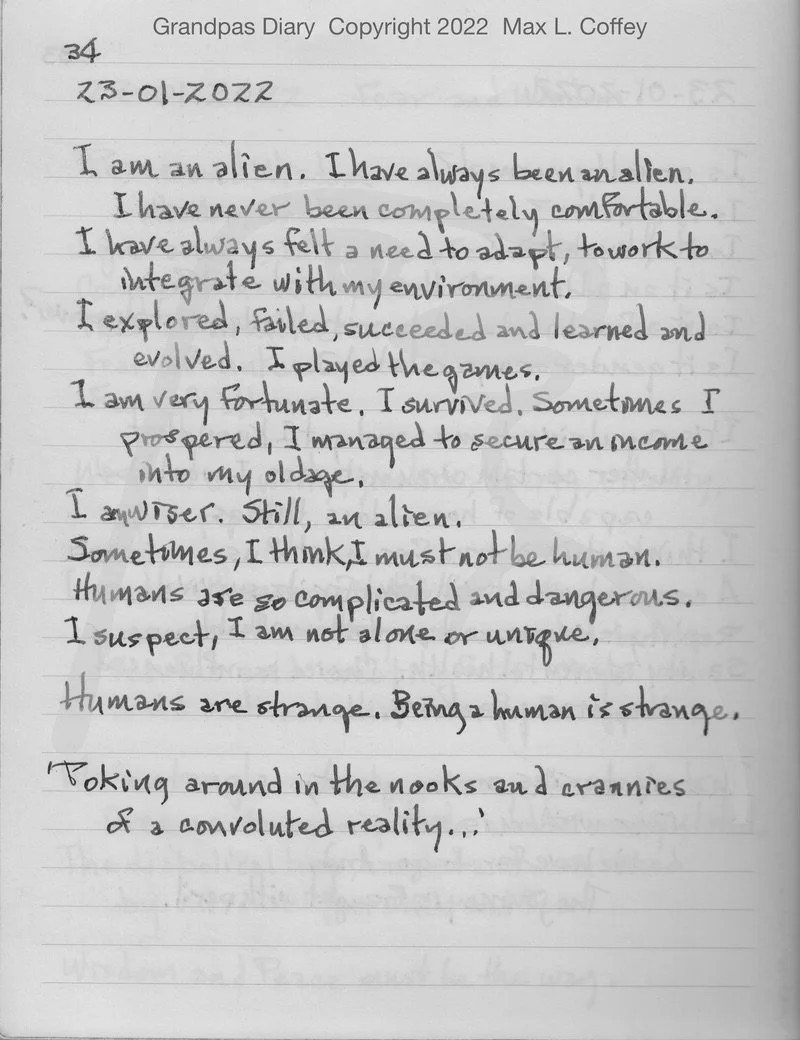 Grandpas Diary Copyright 2022 Max L. Coffey
34
23-01-2022
I am an alien. I have always been an alien.
I have never been completely comfortable.
I have always felt a need to adapt, to work to
integrate with my environment.
I explored, failed, succeeded and learned and
evolved. I played the games.
I am very fortunate. I survived. Sometimes I
prospered, I managed to secure an income
into my old age.
I am wiser. Still, an alien.
Sometimes, I think, I must not be human.
Humans are so complicated and dangerous.
I suspect, I am not alone or unique.
Humans are strange. Being a human is strange.
'Poking around in the nooks and crannies
of a convoluted reality...'